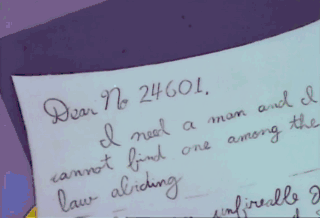 Dear No 24601.
I need a man and I
cannot find one among the
law abiding
unfireable